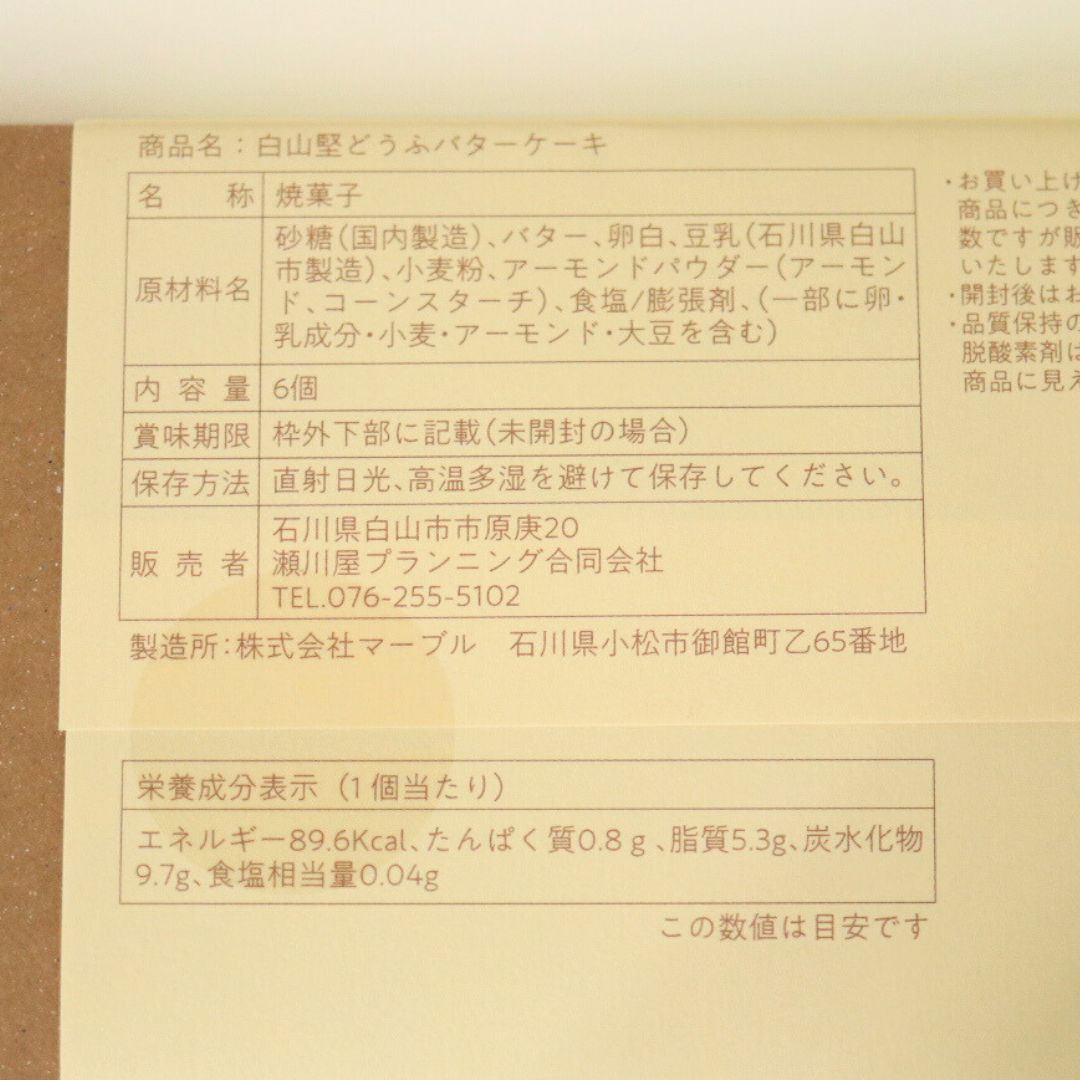 商品名：白山堅どうふバターケーキ
名称 焼菓子
原材料名 砂糖(国内製造)、バター、卵白、豆乳(石川県白山
市製造)、小麦粉、アーモンドパウダー(アーモン
ド、コーンスターチ)、食塩/膨張剤、(一部に卵・
乳成分・小麦・アーモンド・大豆を含む)
内容量 6個
賞味期限 枠外下部に記載(未開封の場合)
保存方法 直射日光、高温多湿を避けて保存してください。
販売者 石川県白山市市原庚20
瀬川屋プランニング合同会社
TEL.076-255-5102
製造所：株式会社マーブル 石川県小松市御館町乙65番地
・お買い上げ
商品につき
数ですが販
いたします
・開封後はお
・品質保持の
脱酸素剤は
商品に見え
栄養成分表示（1個当たり）
エネルギー89.6Kcal、たんぱく質0.8ｇ、脂質5.3g、炭水化物
9.7g、食塩相当量0.04g
この数値は目安です